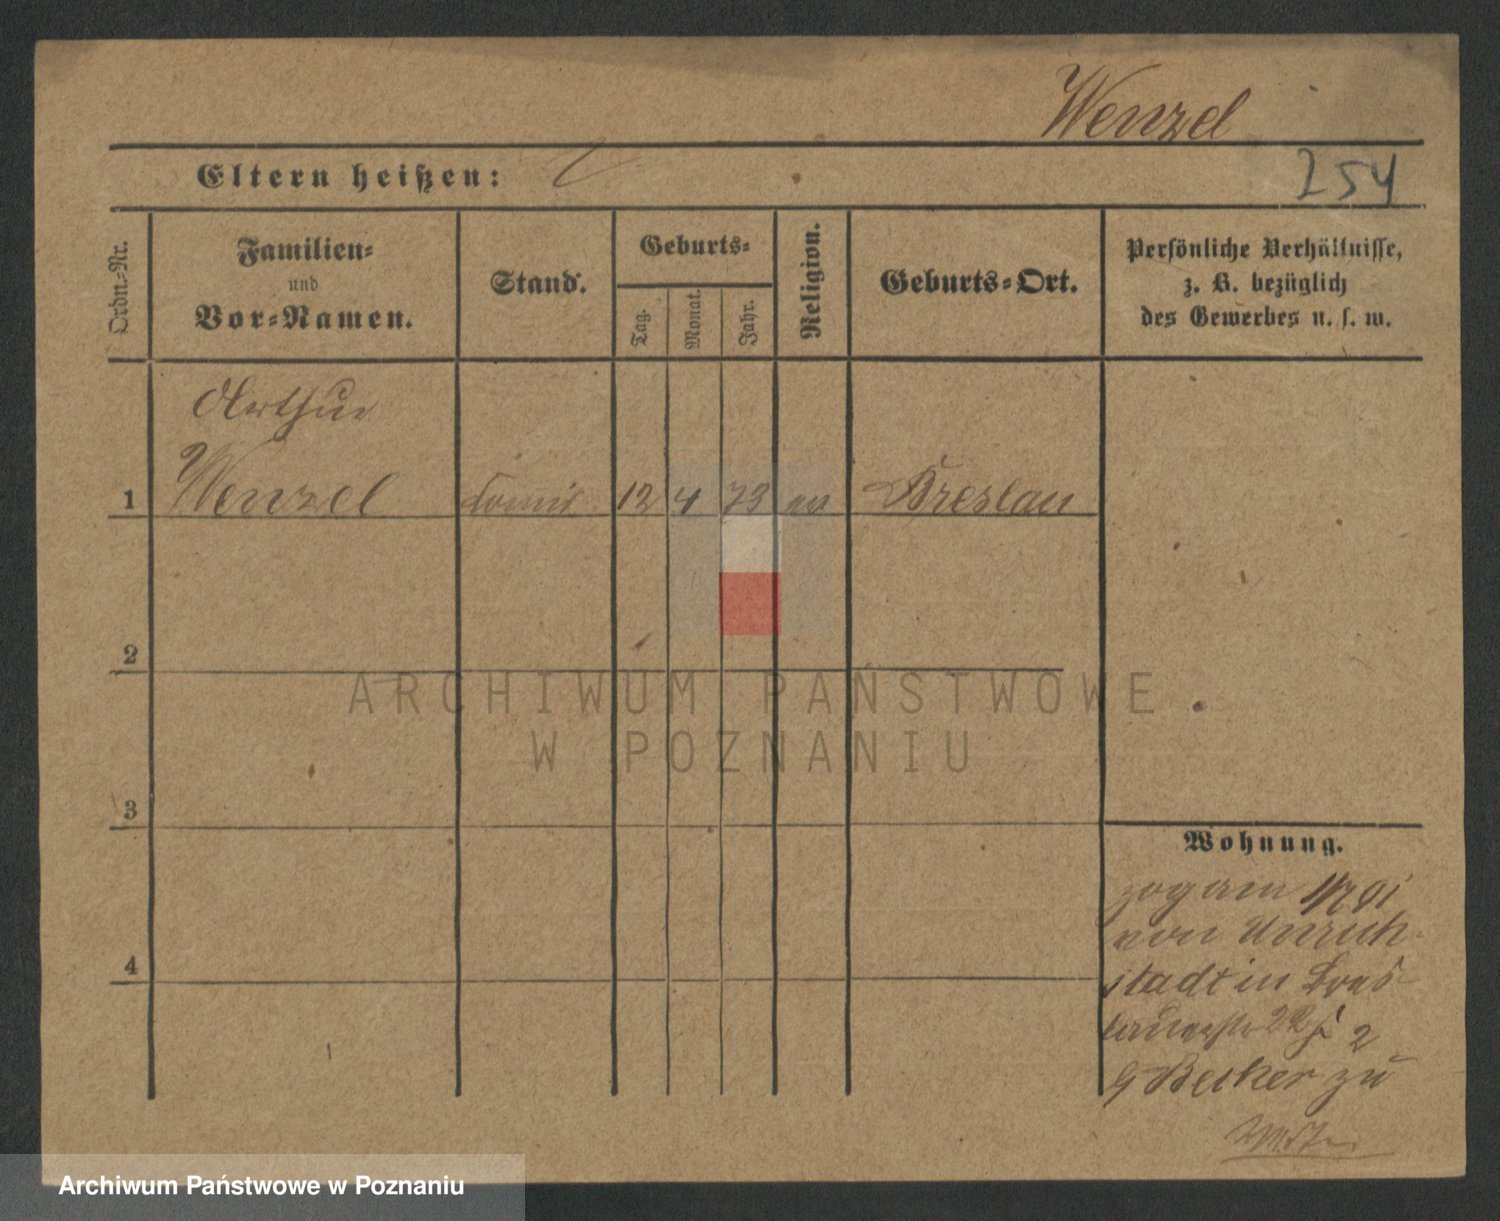 Wenzel
Eltern heißen:
254
Ordn.-Nr.
Familien-
und
Vor-Namen.
Stand.
Geburts-
Tag.
Monat.
Jahr.
Religion.
Geburts-Ort.
Persönliche Verhältnisse,
z. B. bezüglich
des Gewerbes u. s. w.
Arthur
1 Wenzel Comis 12 4 73 ev Breslau
2
3
4
ARCHIWUM PAŃSTWOWE
W POZNANIU
Wohnung.
zog am 1/7 91
von Unruh
stadt in Bres
lauerstr 22 2
Becker zu
Archiwum Państwowe w Poznaniu